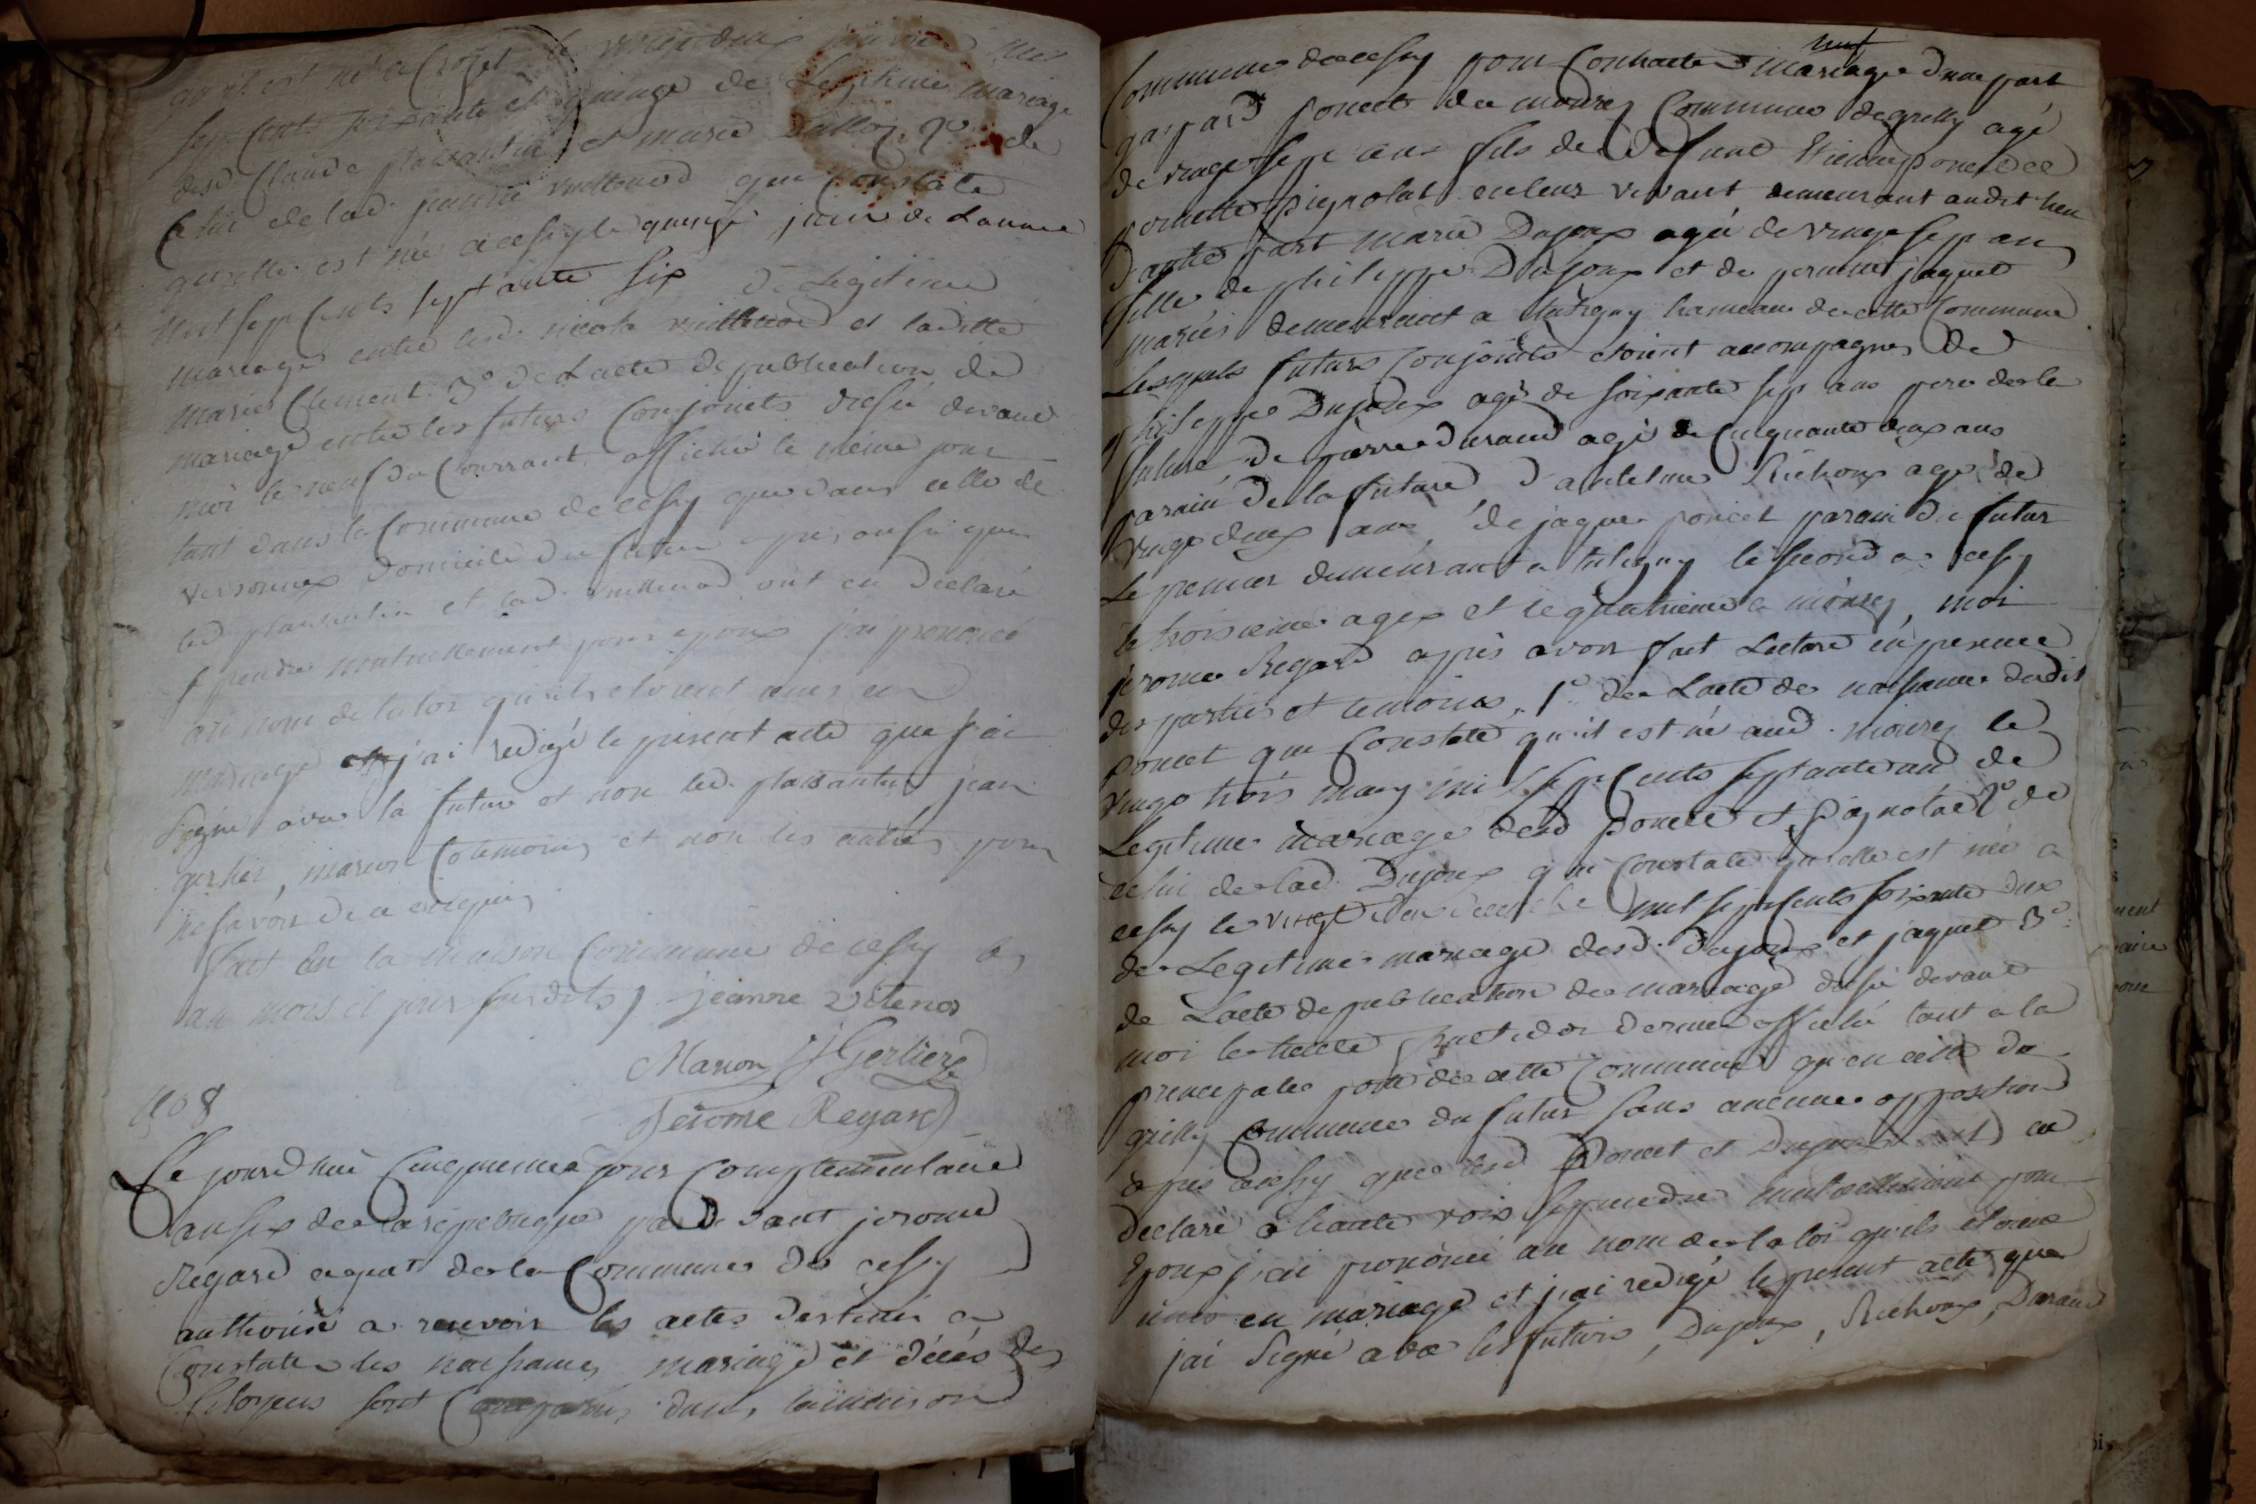 qu'il est né a Crozet le vingt deux janvier mil
sept cent soixante et quinze de Legitime mariage
desd. Claude plaisantin et marie Dalloz 2o de
Celui de lad. jeanne vuittenod qui Constate
qu'elle est née a cessy le quinze juin de Lannee
mil sept Cents septante six de Legitime
mariage entre led. nicolas vuittenod et laditte
marie Clement. 3o de Lacte de publication de
mariage entre les futurs Conjoints dressé devant
moi le neuf du Courrant affiché le même jour
tant dans la Commune de cessy que dans celle de
versonnex domicile du futur apres aussi que
led plaisantin et lad. vuittenod ont eu declaré
se prendre mutuellement pour epoux j'ai prononcé
au nom de la loi qu'ils etoient unis en
mariage et j'ai redigé le present acte que j'ai
signé avec la future et non led. plaisantin, jean
gerlier, marion Cotemoins et non les autres pour
ne savoir de ce enquis
fait en la maison Commune de cessy les
an mois et jour susdits, jeanne vitenod
Marion J Gerlier
Jerome Regard
No 8
Le jourd'hui Cinquieme jour Complementaire
an six de la republique par devant jerome
Regard agent de la Commune de cessy
authorisé a recevoir les actes destinés a
Constater les naissances, mariage et décés des
Citoyens sont Comparus, dans la maison
Commune de cessy pour Contracter mariage d'une part
gaspard poncet de mourex Commune de grilly agé
de vingt sept ans fils de defunt Etienne poncet et
pernette pignolat en leur vivant demeurant audit lieu
D'autre part marie Dujoux agée de vingt sept ans
fille de philippe Dujoux et de pernette jaquet
mariés demeurant a tutegny hameau de cette Commune
Lesquels futurs Conjoints etoient accompagnes De
philippe Dujoux agé de soixante sept ans pere de la
future, de pierre durand agé de Cinquante deux ans
parain de la future, d'antelme Richoux agé de
vingt deux ans, de jaque poncet parain du futur
Le premier demeurant a tutegny le second a cessy
le troisieme a gex et le quatrieme a mourex, moi
jerome Regard après avoir fait Lecture en presence
des parties et temoins, 1o de Lacte de naissance dudit
poncet qui Constate qu'il est né aud. mourex le
vingt trois mars mil sept Cents septante un de
Legitime mariage desd poncet et pignolat 2o de
celui de lad. Dujoux qui Constate qu'elle est née a
cessy le vingt deux mil sept Cents soixante dix
de Legitime mariage desd. dujoux et jaquet 3o
de Lacte de publication de mariage dressé devant
moi le trente fructidor dernier affiché tant a la
principale porte de cette Commune qu'en celle de
grilly Commune du futur sans aucune opposition
apres aussy que lesd Poncet et Dujoux ont eu
declaré a haute voix se prendre mutuellement pour
Epoux j'ai prononcé au nom de la loi qu'ils etoient
unis en mariage et j'ai redigé le present acte que
j'ai signé avec les futurs, Dujoux, Richoux, Durand